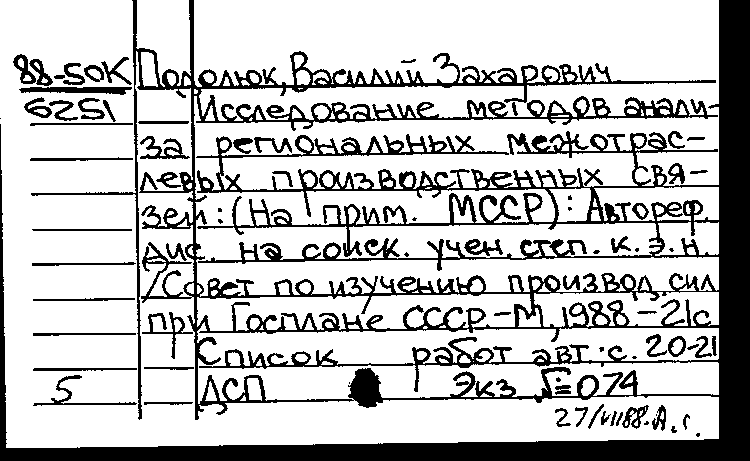 88-50К Подолюк, Василий Захарович.
6251 Исследование методов анали-
за региональных межотрас-
левых производственных свя-
зей: (На прим. МССР): Автореф.
дис. на соиск. учен. степ. к.э.н.
/Совет по изучению производ. сил
при Госплане СССР.-М, 1988.-21с
Список работ авт.: с. 20-21
5 ДСП Экз № 074
27/VII88. А. г.